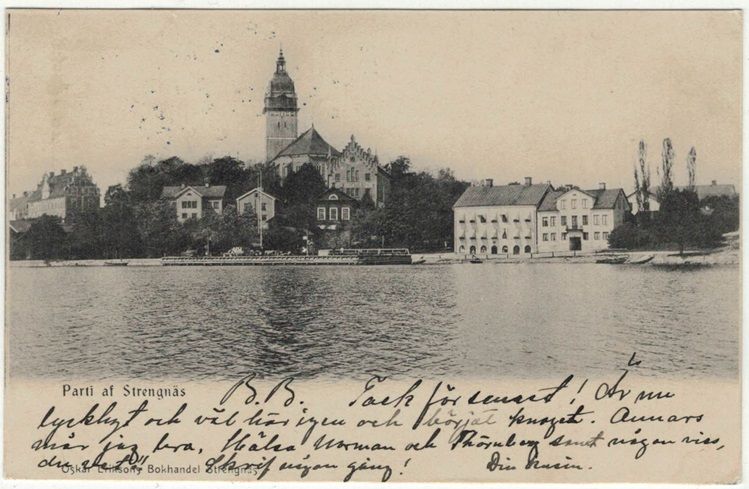 Parti af Strengnäs
B.B. Tack för senast! Är nu
lyckligt och väl här igen och börjat knoget. Annars
mår jag bra. Hälsa Norman och Thörnberg samt någon viss,
du vet! Skrif någon gång! Din Kusin.
Oskar Eriksons Bokhandel Strengnäs